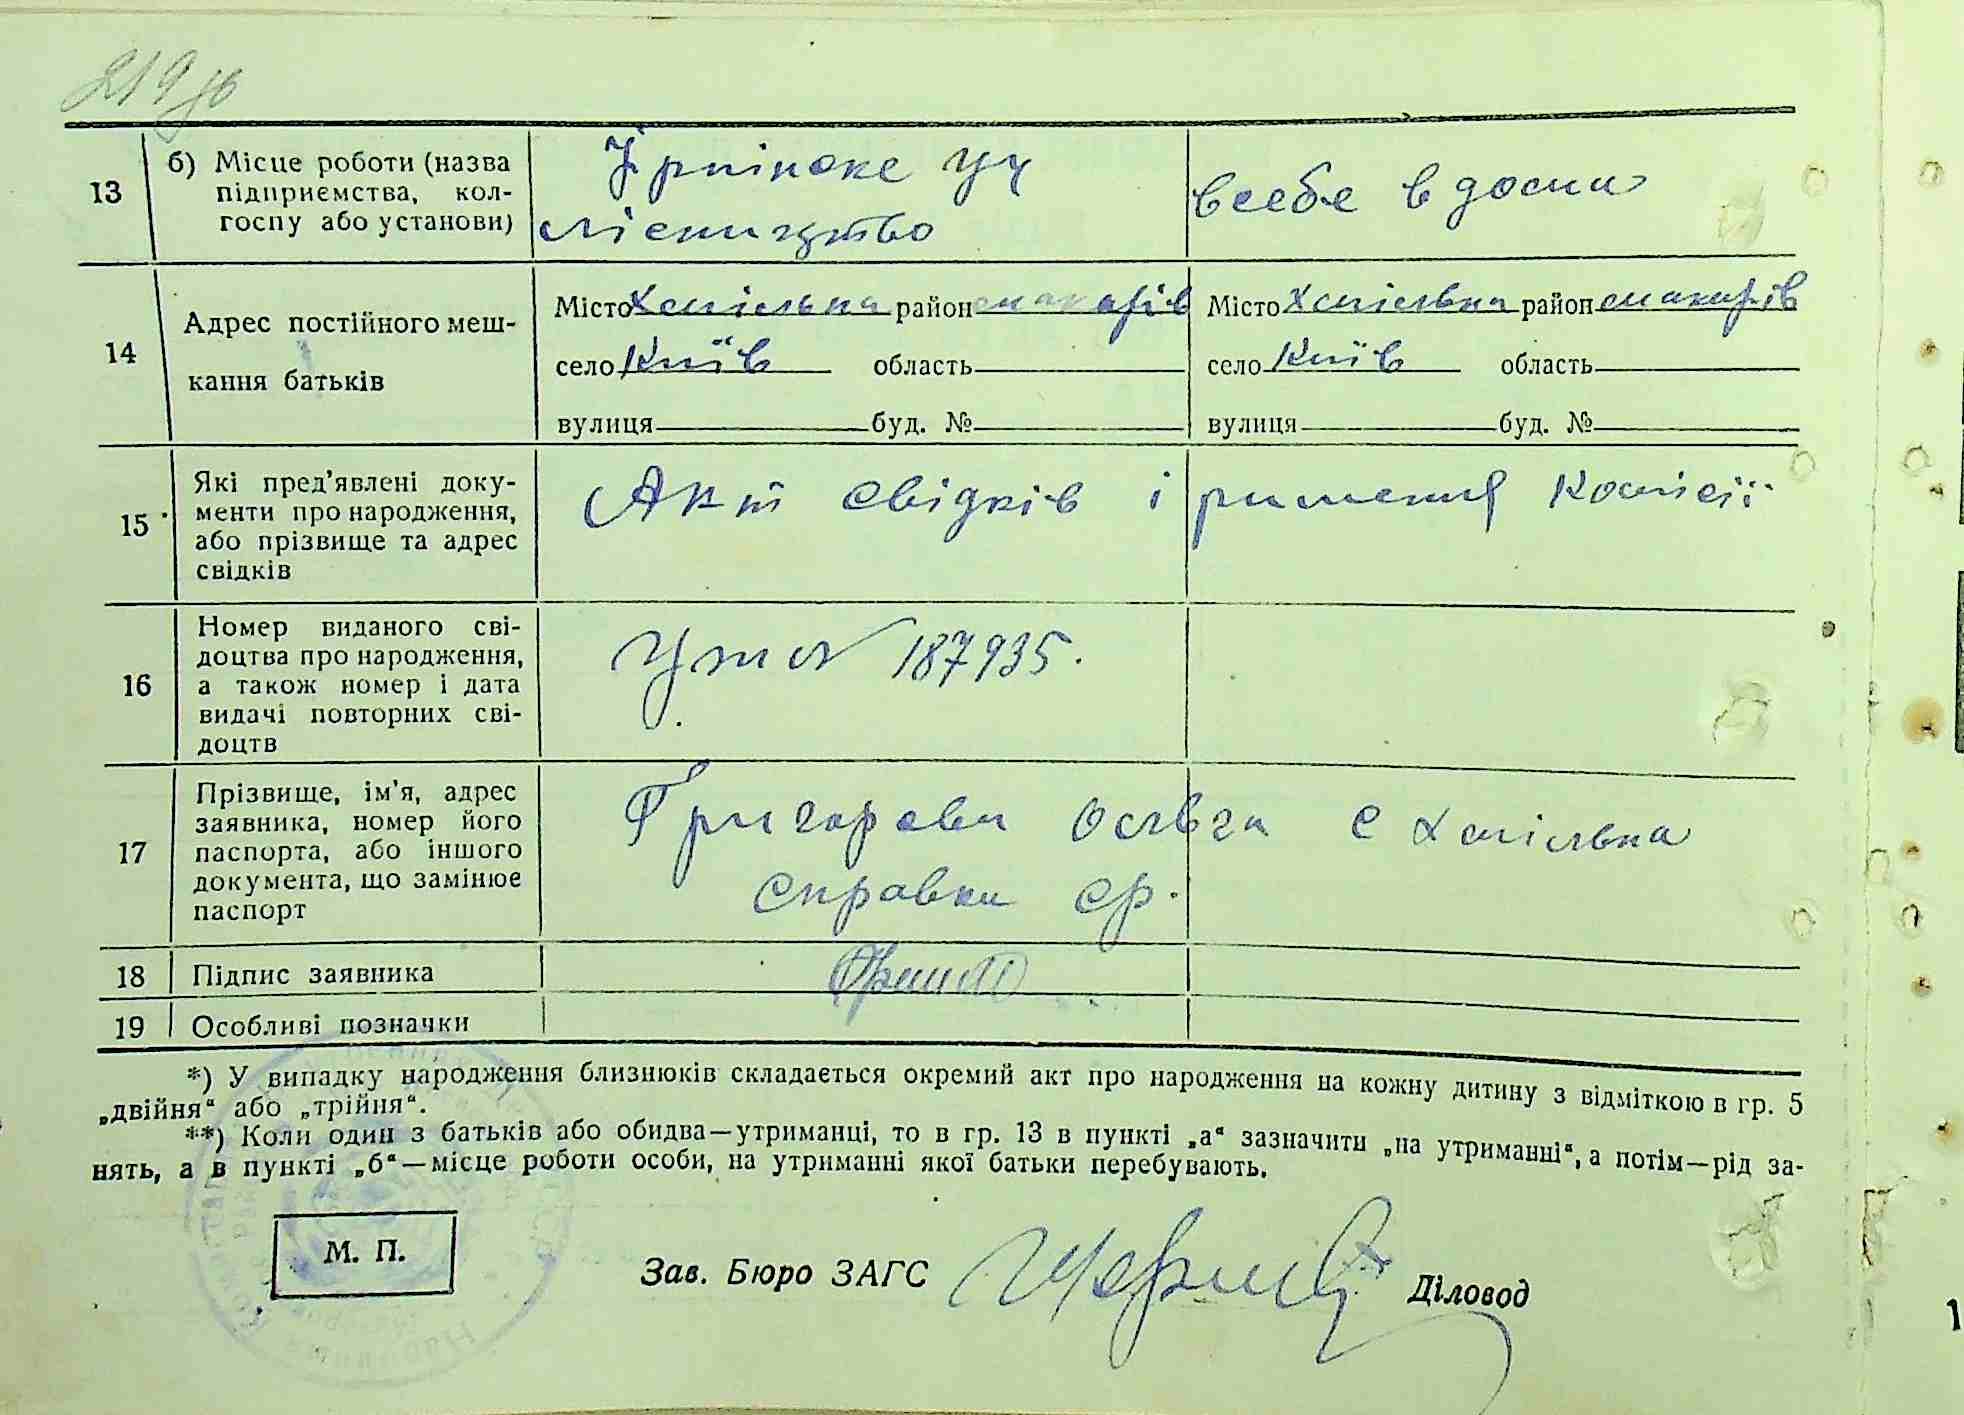 219 зв
13 б) Місце роботи (назва
підприємства, кол-
госпу або установи)
Ірпінське уч
лісництво
в себе в доми
14 Адрес постійного меш-
кання батьків
Місто Хмільна район макарів
село Київ область
вулиця буд. №
Місто Хмільна район макарів
село Київ область
вулиця буд. №
15 Які пред'явлені доку-
менти про народження,
або прізвище та адрес
свідків
Акт свідків і ришения комісії
16 Номер виданого сві-
доцтва про народження,
а також номер і дата
видачі повторних сві-
доцтв
187935.
17 Прізвище, ім'я, адрес
заявника, номер його
паспорта, або іншого
документа, що замінює
паспорт
Григорови Ольга с Хмільна
справки ср.
18 Підпис заявника
19 Особливі позначки
*) У випадку народження близнюків складається окремий акт про народження на кожну дитину з відміткою в гр. 5
„двійня“ або „трійня“.
**) Коли один з батьків або обидва—утриманці, то в гр. 13 в пункті „а“ зазначити „на утриманні“, а потім—рід за-
нять, а в пункті „б“—місце роботи особи, на утриманні якої батьки перебувають.
М. П.
Зав. Бюро ЗАГС
Діловод